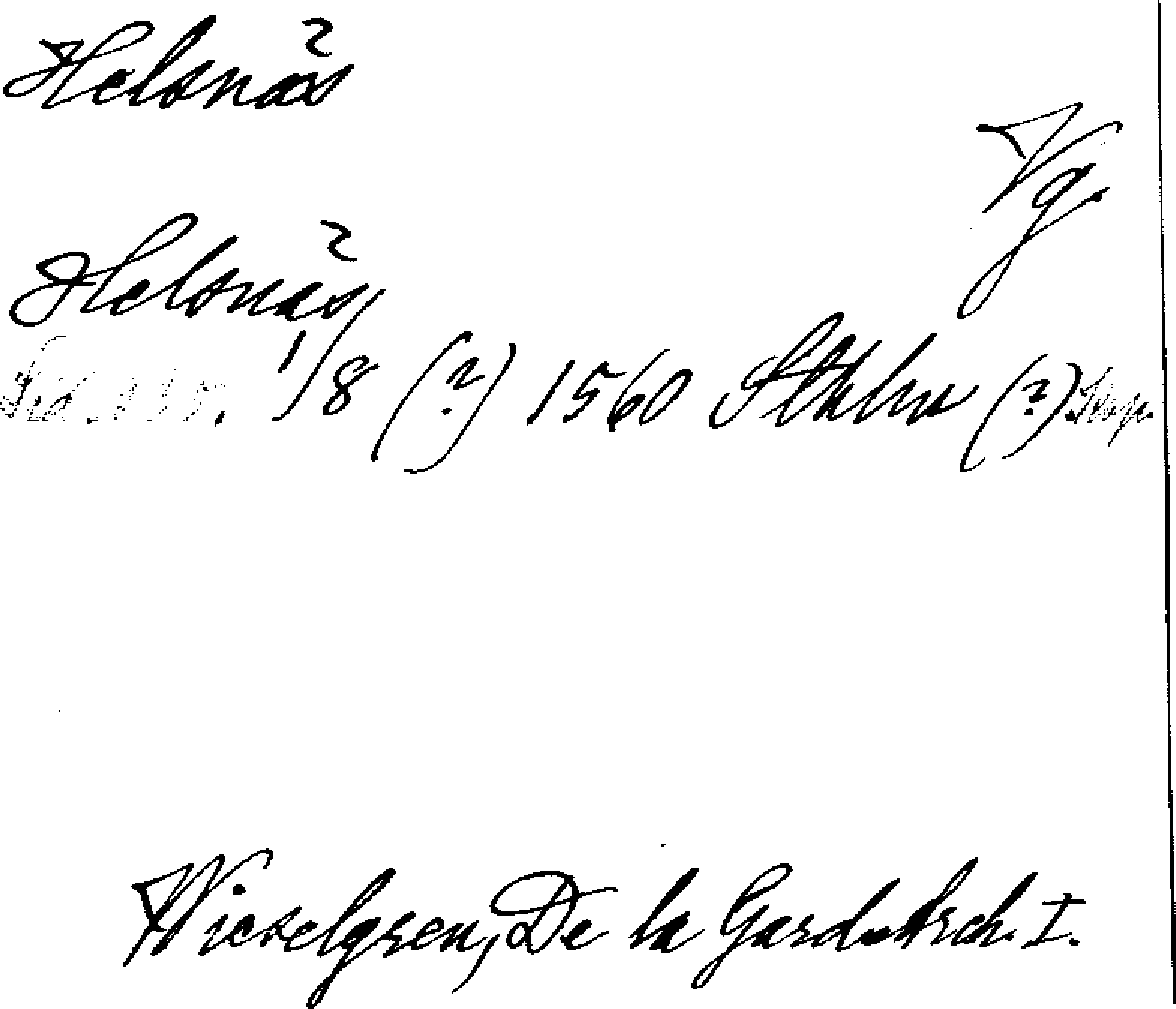 Helsnäs
Vg.
Helsnäs
1/8 (?) 1560 Sthlm (?)
Wieselgren, De la Gard. Arch. I.